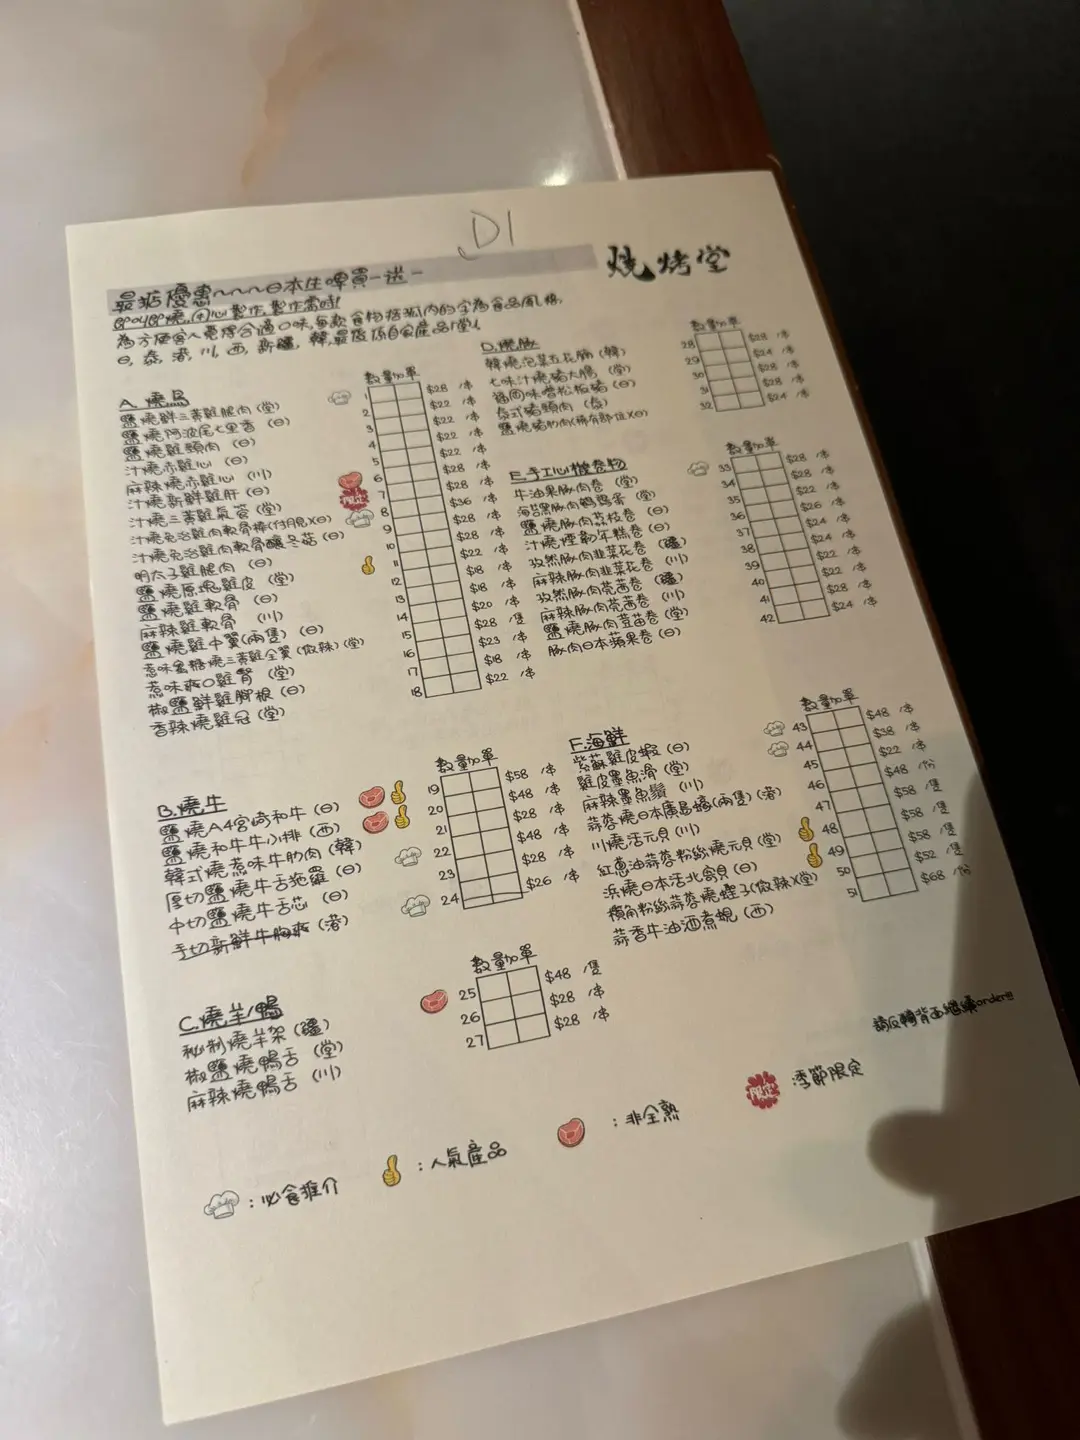 D1
燒烤堂
最強優惠~~~日本生啤買一送一
即叫即燒,用心製作,製作需時!
為方便客人覓得合適口味,每款食物括弧內的字為食品風格,
日, 泰, 港, 川, 西, 新疆, 韓,最後係自家産品「堂」
A. 燒鳥
數量加單
鹽燒鮮三黃雞腿肉 (堂) 1 $28 /串
鹽燒阿波尾七里香 (日) 2 $22 /串
鹽燒雞頸肉 (日) 3 $22 /串
汁燒赤雞心 (日) 4 $22 /串
麻辣燒赤雞心 (川) 5 $22 /串
汁燒新鮮雞肝 (日) 6 $28 /串
汁燒三黃雞氣管 (堂) 7 $28 /串
汁燒免治雞肉軟骨棒(付月見)(日) 8 $36 /串
汁燒免治雞肉軟骨釀冬菇 (日) 9 $28 /串
明太子雞腿肉 (日) 10 $28 /串
鹽燒原塊雞皮 (堂) 11 $22 /串
鹽燒雞軟骨 (日) 12 $18 /串
麻辣雞軟骨 (川) 13 $18 /串
鹽燒雞中翼(兩隻) (日) 14 $20 /串
惹味蜜糖燒三黃雞全翼 (微辣) (堂) 15 $28 /隻
惹味爽口雞腎 (堂) 16 $23 /串
椒鹽鮮雞腳根 (日) 17 $18 /串
香辣燒雞冠 (堂) 18 $22 /串
限定
B. 燒牛
數量加單
鹽燒A4宮崎和牛 (日) 19 $58 /串
鹽燒和牛牛小排 (西) 20 $48 /串
韓式燒惹味牛肋肉 (韓) 21 $28 /串
厚切鹽燒牛舌拖羅 (日) 22 $48 /串
中切鹽燒牛舌芯 (日) 23 $28 /串
手切新鮮牛胸爽 (港) 24 $26 /串
C. 燒羊/鴨
數量加單
秘制燒羊架 (疆) 25 $48 /隻
椒鹽燒鴨舌 (堂) 26 $28 /串
麻辣燒鴨舌 (川) 27 $28 /串
D. 燒豚
數量加單
韓燒泡菜五花腩 (韓) 28 $28 /串
七味汁燒豬大腸 (堂) 29 $24 /串
西味噌松板豬 (日) 30 $28 /串
泰式豬頸肉 (泰) 31 $28 /串
鹽燒豬肋肉(稀有部位)(日) 32 $24 /串
E. 手工心機卷物
數量加單
牛油果豚肉卷 (堂) 33 $28 /串
海苔黑豚肉鵪鶉蛋 (堂) 34 $28 /串
鹽燒豚肉荔枝卷 (日) 35 $22 /串
汁燒煙韌年糕卷 (日) 36 $26 /串
孜然豚肉韭菜花卷 (疆) 37 $24 /串
麻辣豚肉韭菜花卷 (川) 38 $24 /串
孜然豚肉芫茜卷 (疆) 39 $22 /串
麻辣豚肉芫茜卷 (川) 40 $22 /串
鹽燒豚肉荳苗卷 (堂) 41 $28 /串
豚肉日本蘋果卷 (日) 42 $24 /串
F. 海鮮
數量加單
紫蘇雞皮蝦 (日) 43 $48 /串
雞皮墨魚滑 (堂) 44 $38 /串
麻辣墨魚鬚 (川) 45 $22 /串
蒜蓉燒日本廣島蠔(兩隻) (港) 46 $48 /份
川燒活元貝 (川) 47 $58 /隻
紅蔥油蒜蓉粉絲燒元貝 (堂) 48 $58 /隻
浜燒日本活北寄貝 (日) 49 $58 /隻
欖角粉絲蒜蓉燒蟶子(微辣)(堂) 50 $52 /隻
蒜香牛油酒煮蜆 (西) 51 $68 /份
請反轉背面繼續order!!!
:必食推介
:人氣産品
:非全熟
限定 :季節限定